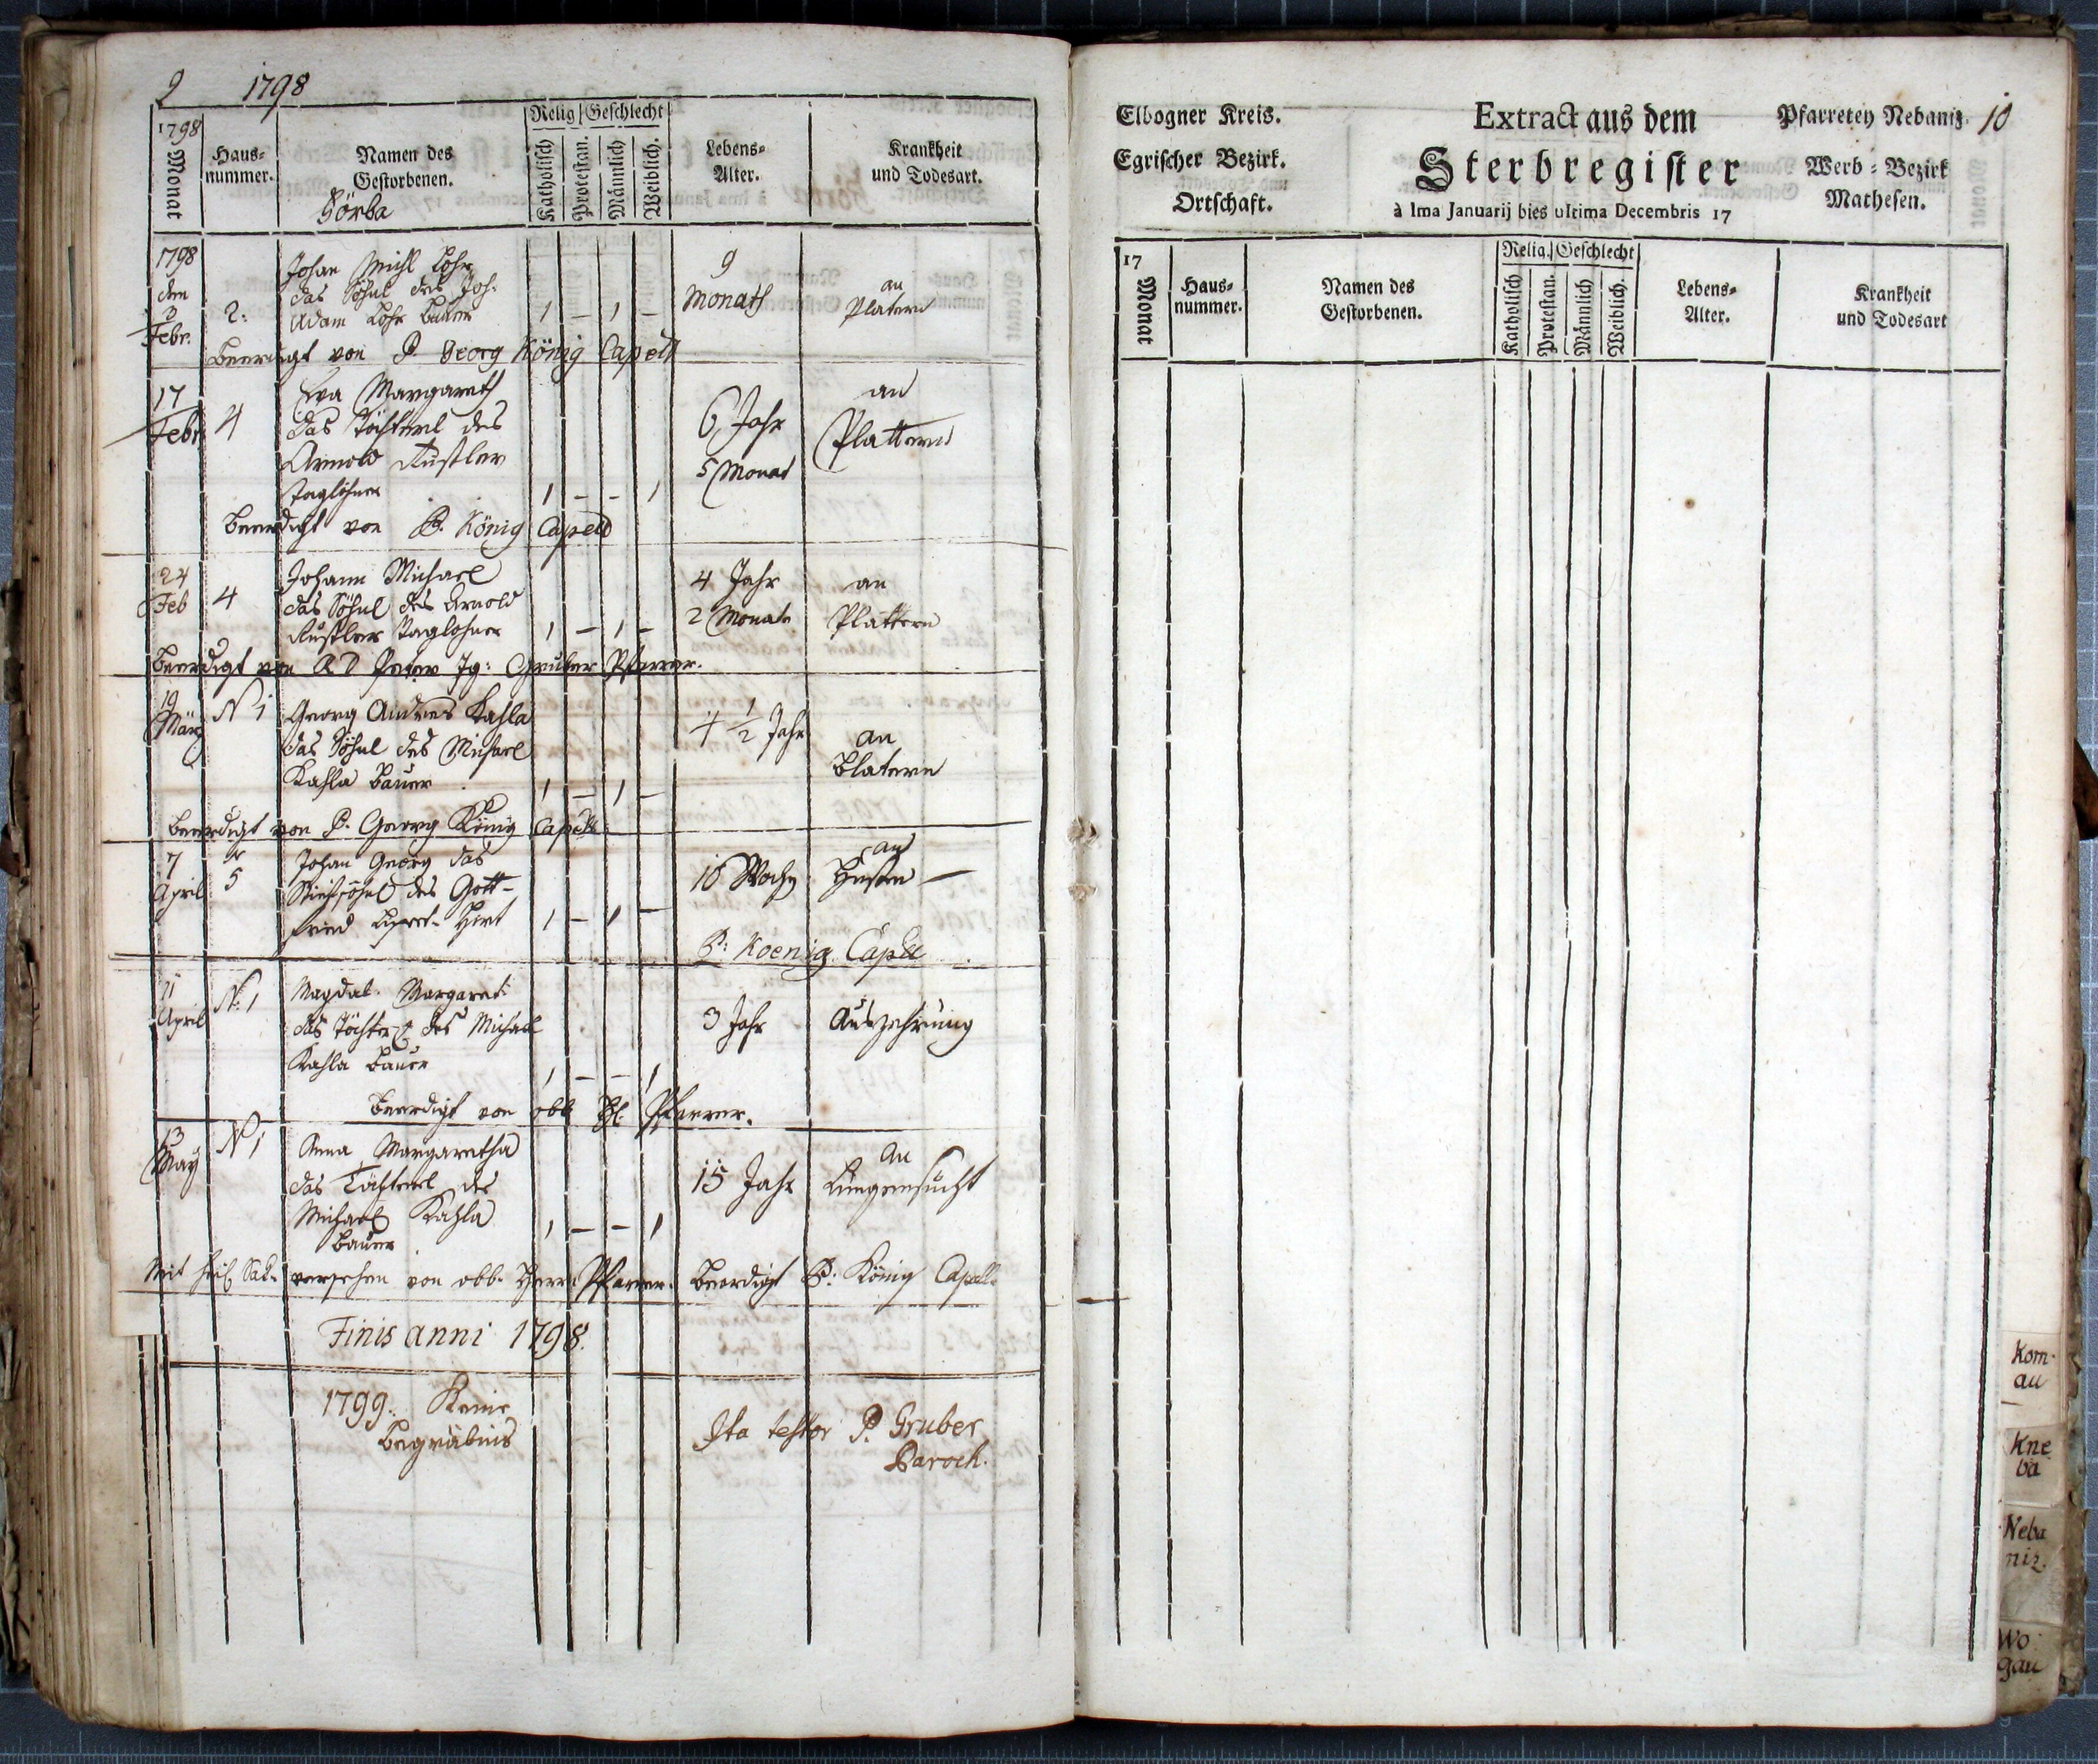 9 1798
1798 Monat
Haus=nummer.
Namen des Gestorbenen.
Sörba
Relig Geschlecht
Katholisch
Protestan.
Männlich
Weiblich.
Lebens=Alter.
Krankheit und Todesart.
1798 den 3 Febr.
2.
Johan Michl Lohr
das Söhnl des Joh.
Adam Lohr Bauer
1 – 1 –
9 Monath
an Platern
Beerdigt von P. Georg König Capell
17 Febr.
4
Eva Margareth
das Töchterl des
Arnold
Taglöhner
1 – – 1
6 Jahr
5 Monat
an Plattern
Beerdigt von P. König Capell
24 Feb
4
Johann Michael
das Söhnl des Arnold
Taglohner
1 – 1 –
4 Jahr
2 Monate
an Plattern
Beerdigt von Ig: Gruber Pfarrer.
19 März
N 1
Georg Andres Kahla
das Söhnl des Michael
Kahla Bauer
1 – 1 –
4 1/2 Jahr
an Blatern
Beerdigt von P. Georg König Capell
7 April
N 5
Johan Georg das
des Gott-
fried Hirt
1 – 1 –
16 Woch
an Husten –
P: Koenig Capell
11 April
N: 1
Magdal. Margaret
das Töchterl des Michael
Kahla Bauer
1 – – 1
3 Jahr
Auszehrung
Beerdigt von obb Pfarrer.
13 May
N 1
Anna Margaretha
das Töchterl des
Michael Kahla
Bauer
1 – – 1
15 Jahr
an Lungensucht
Mit versehen von obb. Herr Pfarrer. Beerdigt P: König Capell.
Finis anni 1798.
1799. Keine
Begräbnis
Ita testor P. Gruber
Paroch.
Elbogner Kreis.
Egrischer Bezirk.
Ortschaft.
Extract aus dem
Sterbregister
à Ima Januarij bies ultima Decembris 17
Pfarretey Nebaniz. 10
Werb=Bezirk
Mathesen.
17 Monat
Haus=nummer.
Namen des Gestorbenen.
Relig. Geschlecht
Katholisch
Protestan.
Männlich
Weiblich.
Lebens=Alter.
Krankheit und Todesart
Korn-
au
Kne
ba
Neba
niz.
Wo
gau